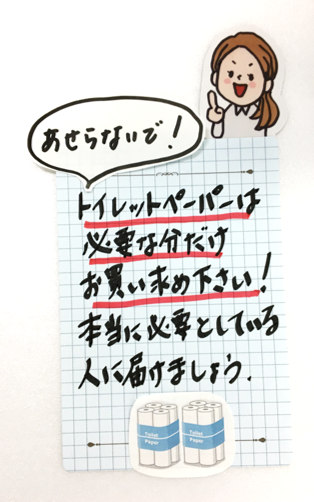 あせらないで！
トイレットペーパーは
必要な分だけ
お買い求め下さい！
本当に必要としている
人に届けましょう.
Toilet
Paper
Toilet
Paper